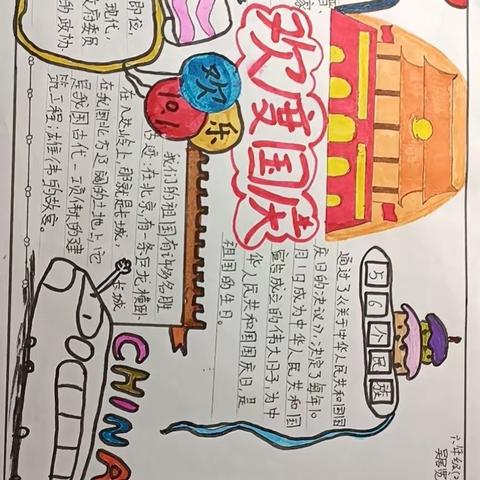 欢度国庆
欢
乐
10.1
部位,
现代,
的政协
通过了《关于中华人民共和国国
庆日的决议》,决定了每年10
月1日成为中华人民共和国
宣告成立的伟大日子,为中
华人民共和国国庆日,是
祖国的生日。
我们的祖国有许多名胜
古迹,在北京,有一条巨龙横卧
在八达岭上,那就是长城,
在我国北方辽阔的土地上,它
是我国古代一项伟大的建
筑工程,
的故事。
长城
56个民族
CHINA
六年级